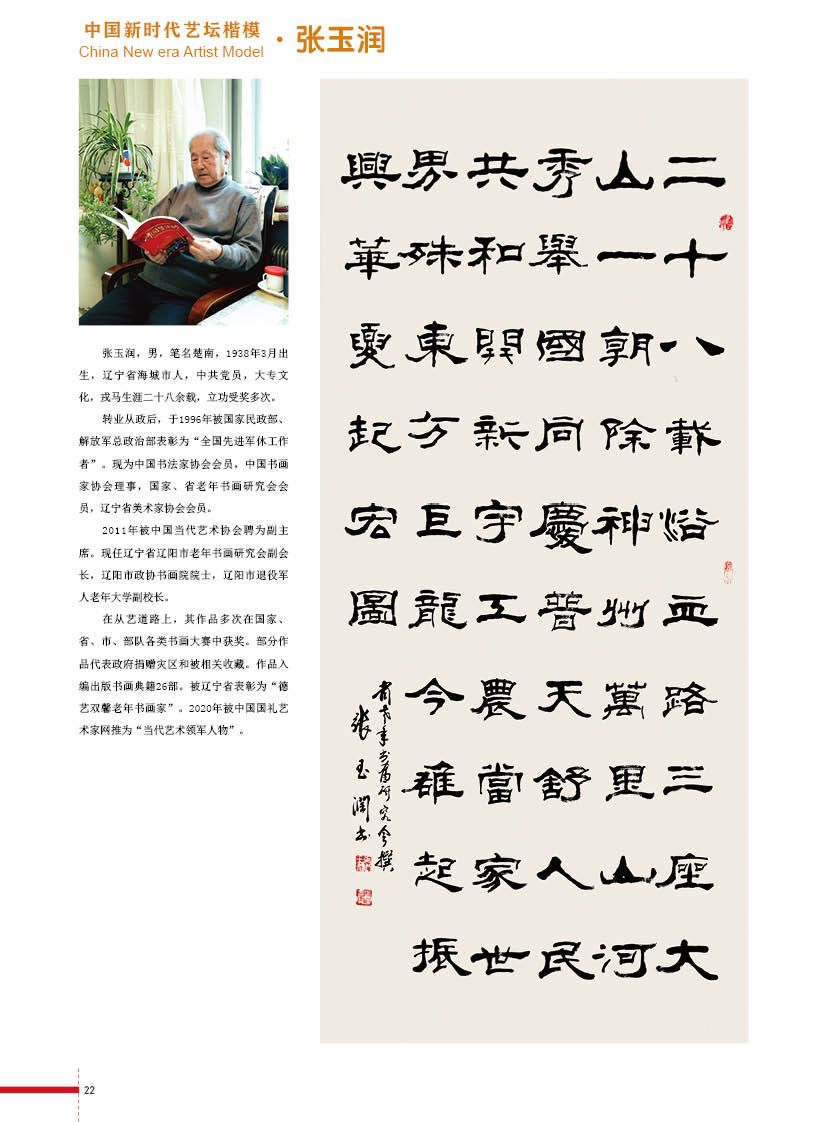 中国新时代艺坛楷模
China New era Artist Model
·张玉润
张玉润，男，笔名楚南，1938年3月出
生，辽宁省海城市人，中共党员，大专文
化，戎马生涯二十八余载，立功受奖多次。
转业从政后，于1996年被国家民政部、
解放军总政治部表彰为“全国先进军休工作
者”。现为中国书法家协会会员，中国书画
家协会理事，国家、省老年书画研究会会
员，辽宁省美术家协会会员。
2011年被中国当代艺术协会聘为副主
席。现任辽宁省辽阳市老年书画研究会副会
长，辽阳市政协书画院院士，辽阳市退役军
人老年大学副校长。
在从艺道路上，其作品多次在国家、
省、市、部队各类书画大赛中获奖。部分作
品代表政府捐赠灾区和被相关收藏。作品入
编出版书画典籍26部。被辽宁省表彰为“德
艺双馨老年书画家”。2020年被中国国礼艺
术家网推为“当代艺术领军人物”。
二十八載浴血路三座大
山一朝除神州萬里山河
秀舉國同慶普天舒人民
共和開新宇工農當家世
界殊東方巨龍今雄起振
興華夏起宏圖
省老年书画研究会撰
張玉潤书
22